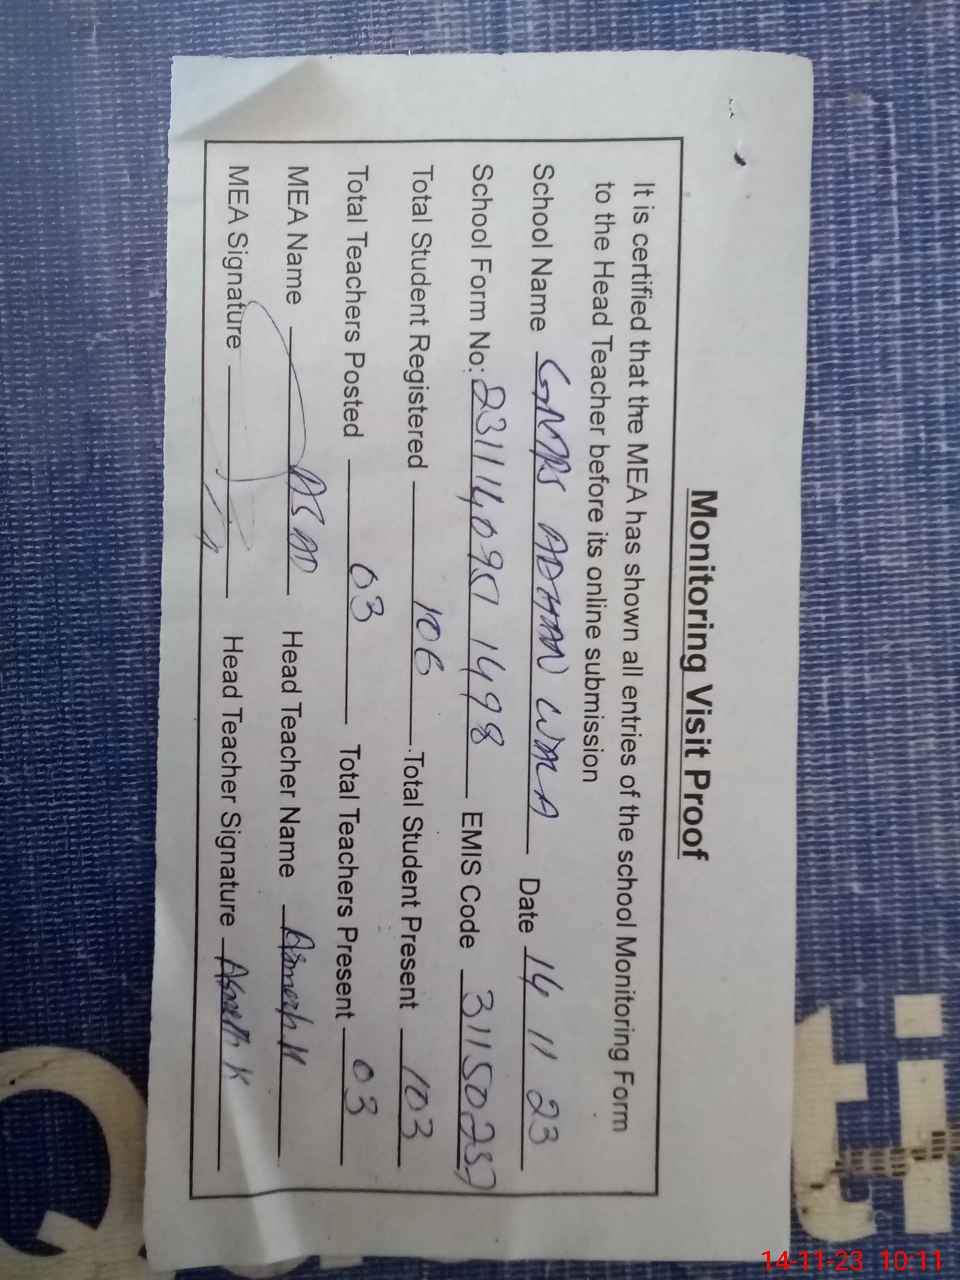 Monitoring Visit Proof
It is certified that the MEA has shown all entries of the school Monitoring Form
to the Head Teacher before its online submission
School Name GMPS ADHAN WALA Date 14 11 23
School Form No: 231114095 1498 EMIS Code 3115023
Total Student Registered 106 Total Student Present 103
Total Teachers Posted 03 Total Teachers Present 03
MEA Name ASAD Head Teacher Name
MEA Signature Head Teacher Signature
ti
Q
14-11-23 10:11